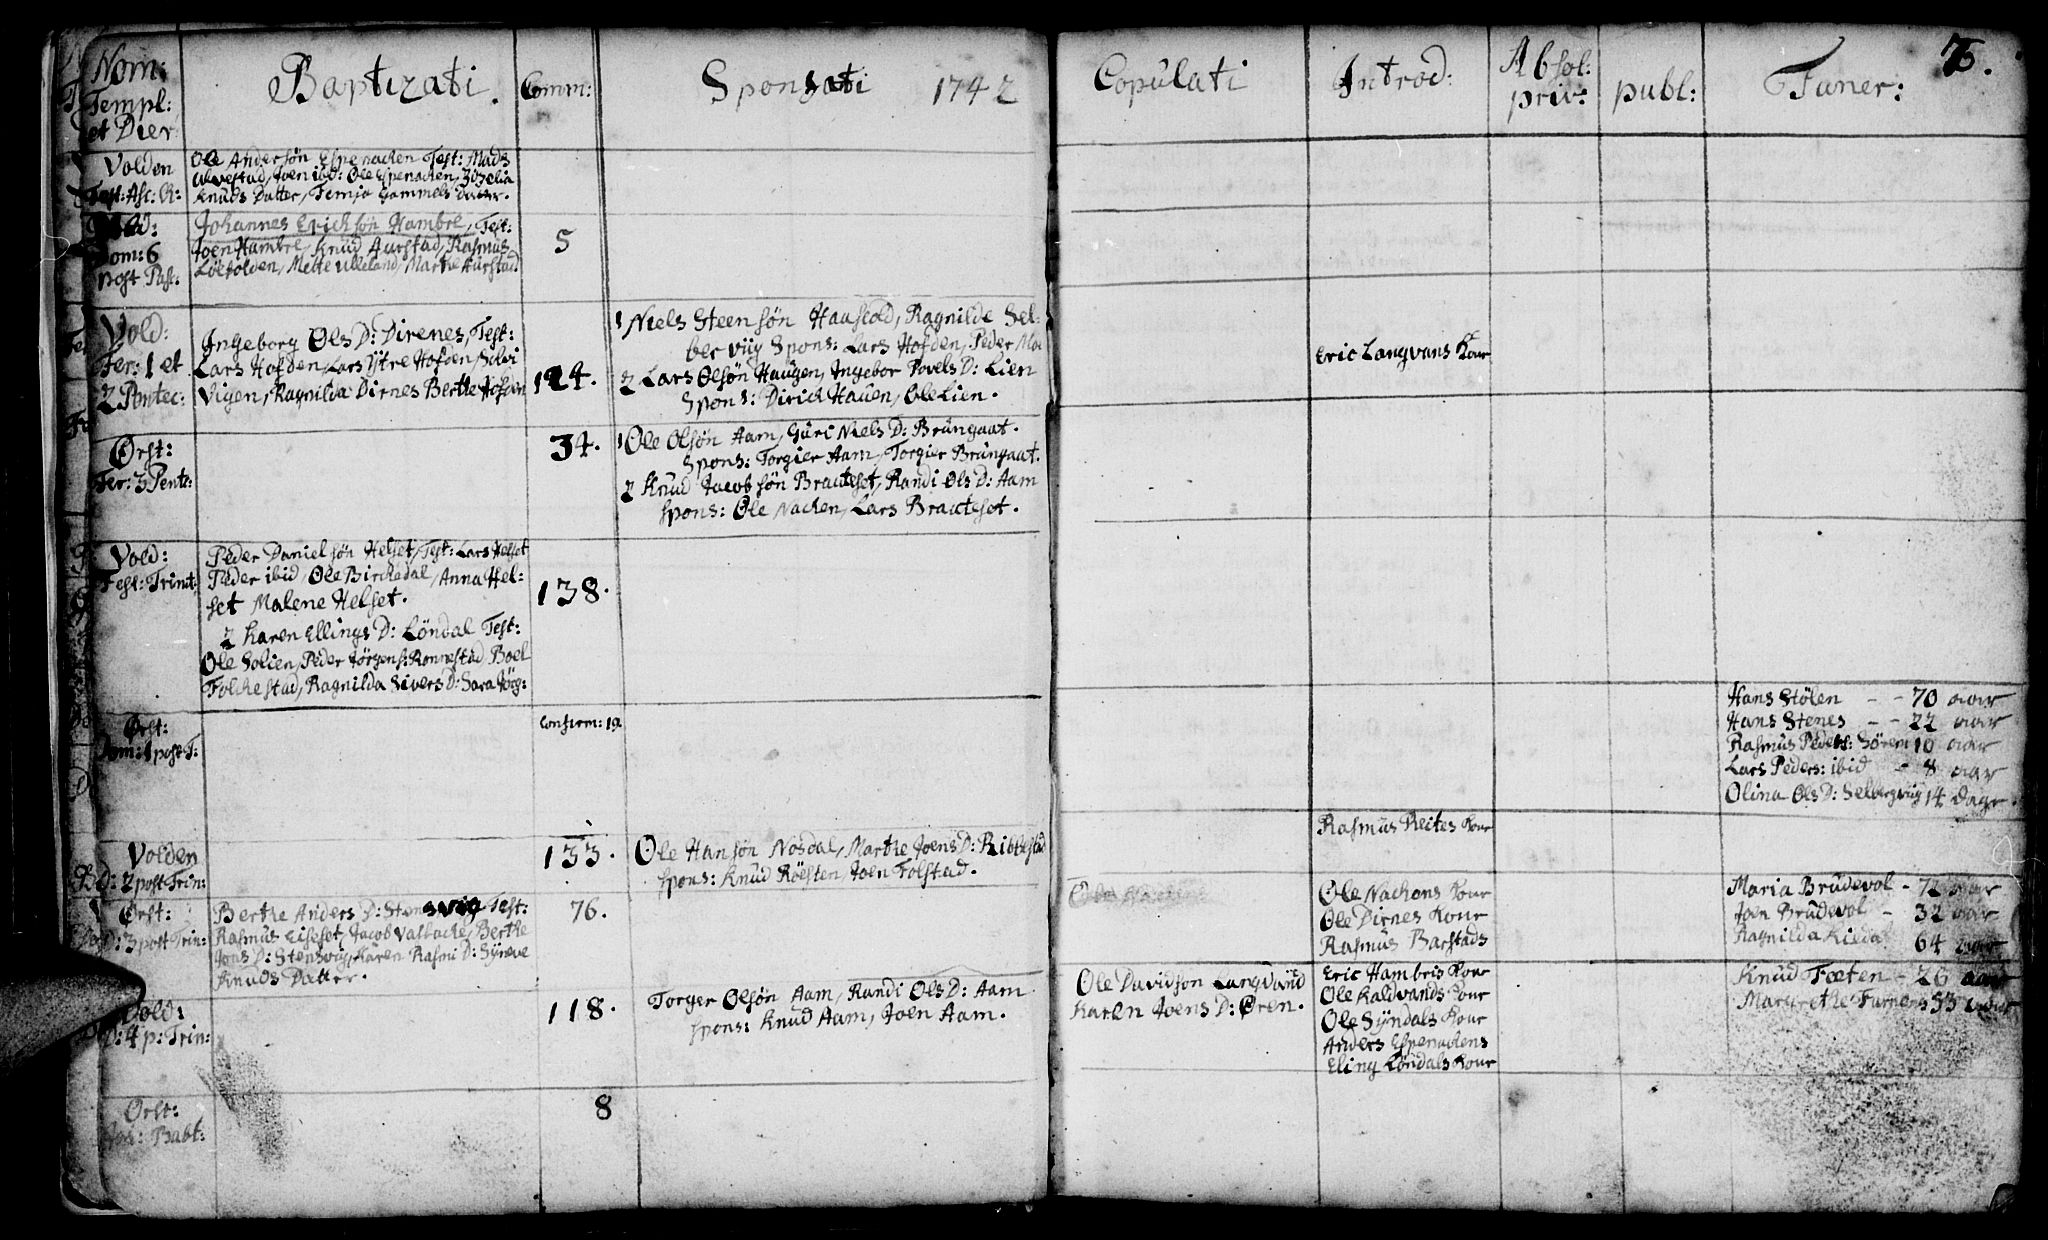 Nom: Templ: et Dier
Baptizati.
Comm:
Sponsati 1742
Copulati
Introd:
Absol: priv:
publ:
Funer:
75.
Volden
Fest: Asc: X:
Ole Andersøn Espenacken Test: Mads
Ulvestad, Joen ibid: Ole Espenacken,
Knuds Datter, Temjo Gammels Datter.
Vold:
Dom: 6
post Pas:
Johannes Erichsøn Hambre, Test:
Joen Hambre, Knud Aurstad, Rasmus
Løefolden, Mette Ulleland, Marthe Aurstad
5
Vold:
Fer: 1 et
2 Pentec:
Ingeborg Ols D: Direnes, Test:
Lars Hofden, Lars Ytre Hofden, Solvi
Vigen, Ragnilda Dirnes Berthe Hofden
124.
1 Niels Steensøn Haustad, Ragnilde Sel-
berviig Spons: Lars Hofden, Peder Mo
2 Lars Olsøn Haugen, Ingebor Povels D: Lien
Spons: Dirich Hauen, Ole Lien.
Eric Langvans Kone
Ørst:
Fer: 3 Pente:
34.
1 Ole Olsøn Aam, Guri Niels D: Brungaat.
Spons: Torgier Aam, Torgier Brungaat.
2 Knud Jacobsøn Brauteset, Randi Ols D: Aam
Spons: Ole Nacken, Lars Brauteset.
Vold:
Fest: Trinit:
Peder Danielsøn Helset, Test: Lars Helset
Peder ibid, Ole Birchedal, Anna Hel-
set Malene Helset.
2 Karen Ellings D: Løndal Test:
Ole Solien, Peder Jørgens: Ronnestad Boel
Folckestad, Ragnilda Sivers D: Sara Jørg:
138.
Ørst:
Dom: 1 post T:
Confirm: 19
Hans Stølen - - 70 aar
Hans Stenes - - 22 aar
Rasmus Peders: Søren 10 aar
Lars Peders: ibid - 8 aar
Olina Ols D: Selbergviig 14 Dage.
Volden
D: 2 post Trin:
133.
Ole Hansøn Nosdal, Marthe Joens D: Ribbestad
Spons: Knud Røesten, Joen Folstad.
Rasmus Reites Kone
Ørst:
D: 3 post Trin:
Berthe Anders D: Stensvig Test:
Rasmus Eiseset, Jacob Vatbacke, Berthe
Jons D: Stensviig, Karen Rasmi D: Syreve
Knuds Datter.
76.
Ole Nackens Kone
Ole Dirnes Kone
Rasmus Barstads
Maria Brudevol - 72 aar
Joen Brudevol - 32 aar
Ragnilda Kilda 64 aar
Vold:
D: 4 p: Trin:
118.
Torger Olsøn Aam, Randi Ols D: Aam
Spons: Knud Aam, Joen Aam.
Ole Davidson Langvand
Karen Joens D: Øren.
Eric Hambris Kone
Ole Kaldvands Kone
Ole Syndals Kone
Anders Espenackens
Eling Løndals Kone
Knud Fæten - 26 aar
Margrethe Furnes 53 aar
Ørst:
Joh: Babt:
8